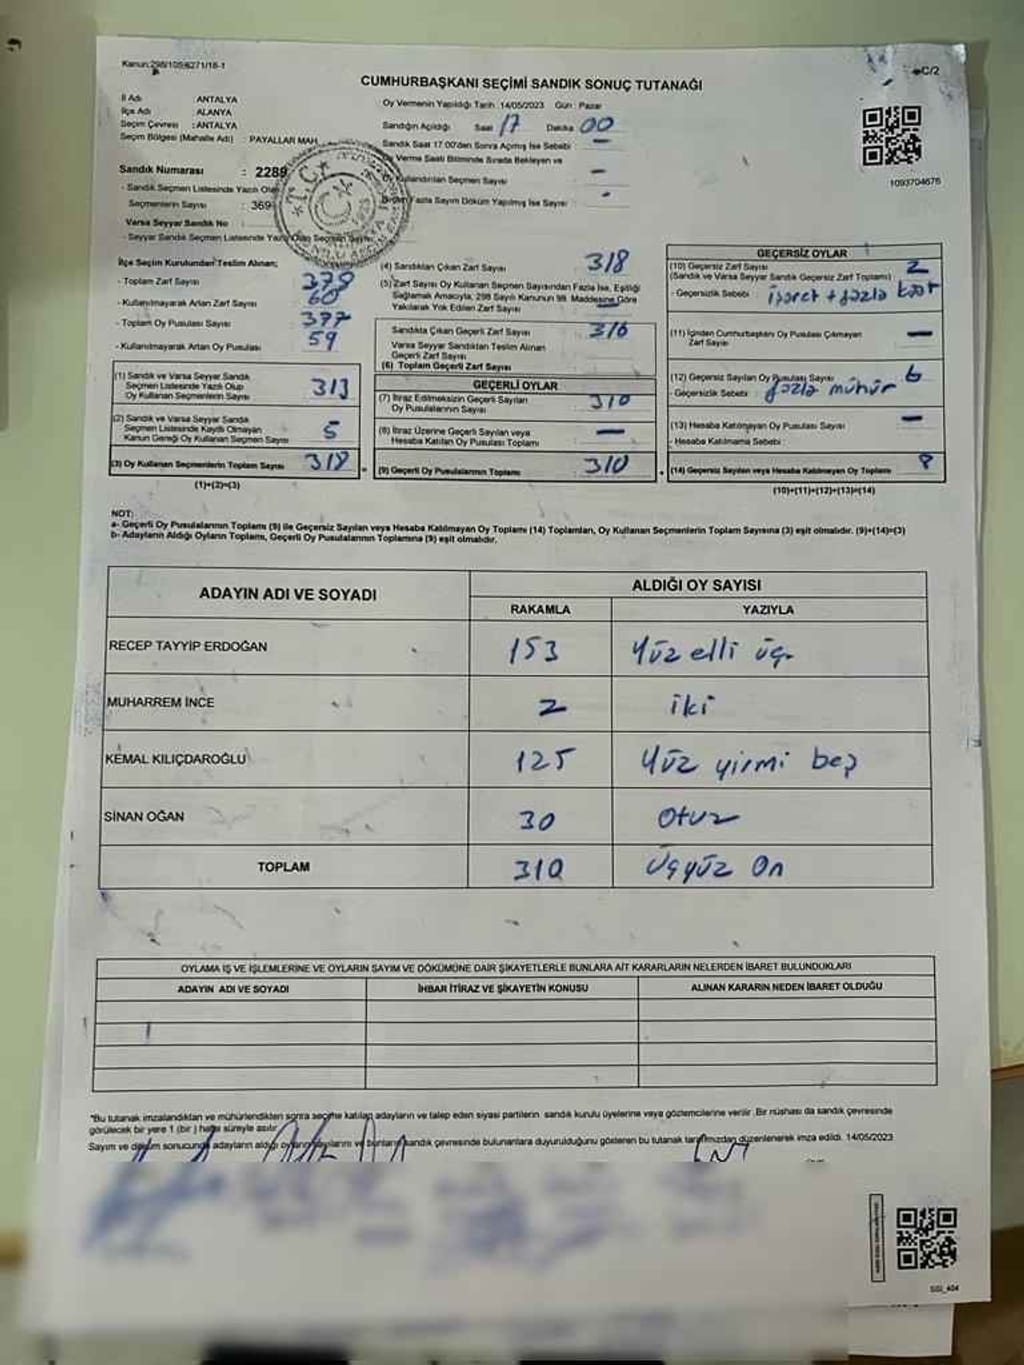 Kanun:298/105/6271/18-1
C/2
CUMHURBAŞKANI SEÇİMİ SANDIK SONUÇ TUTANAĞI
İl Adı : ANTALYA
İlçe Adı : ALANYA
Seçim Çevresi : ANTALYA
Seçim Bölgesi (Mahalle Adı) : PAYALLAR MAH.
Sandık Numarası : 2289
- Sandık Seçmen Listesinde Yazılı Olan
Seçmenlerin Sayısı : 369
Varsa Seyyar Sandık No :
- Seyyar Sandık Seçmen Listesinde Yazılı Olan Seçmen Sayısı
Oy Vermenin Yapıldığı Tarih :14/05/2023 Gün : Pazar
Sandığın Açıldığı Saat 17 Dakika 00
Sandık Saat 17:00'den Sonra Açılmış İse Sebebi : —
Oy Verme Saati Bitiminde Sırada Bekleyen ve
Oy Kullandırılan Seçmen Sayısı —
Birden Fazla Sayım Döküm Yapılmış İse Sayısı : -
1093704676
İlçe Seçim Kurulundan Teslim Alınan;
- Toplam Zarf Sayısı 378
- Kullanılmayarak Artan Zarf Sayısı 60
- Toplam Oy Pusulası Sayısı 377
- Kullanılmayarak Artan Oy Pusulası 59
(1) Sandık ve Varsa Seyyar Sandık
Seçmen Listesinde Yazılı Olup
Oy Kullanan Seçmenlerin Sayısı 313
(2) Sandık ve Varsa Seyyar Sandık
Seçmen Listesinde Kayıtlı Olmayan
Kanun Gereği Oy Kullanan Seçmen Sayısı 5
(3) Oy Kullanan Seçmenlerin Toplam Sayısı 318
(1)+(2)=(3)
(4) Sandıktan Çıkan Zarf Sayısı 318
(5) Zarf Sayısı Oy Kullanan Seçmen Sayısından Fazla İse, Eşitliği
Sağlamak Amacıyla, 298 Sayılı Kanunun 98. Maddesine Göre
Yakılarak Yok Edilen Zarf Sayısı —
Sandıkta Çıkan Geçerli Zarf Sayısı 316
Varsa Seyyar Sandıktan Teslim Alınan
Geçerli Zarf Sayısı
(6) Toplam Geçerli Zarf Sayısı
GEÇERLİ OYLAR
(7) İtiraz Edilmeksizin Geçerli Sayılan
Oy Pusulalarının Sayısı 310
(8) İtiraz Üzerine Geçerli Sayılan veya
Hesaba Katılan Oy Pusulası Toplamı —
(9) Geçerli Oy Pusulalarının Toplamı 310
GEÇERSİZ OYLAR
(10) Geçersiz Zarf Sayısı 2
(Sandık ve Varsa Seyyar Sandık Geçersiz Zarf Toplamı)
- Geçersizlik Sebebi : işaret + fazla
(11) İçinden Cumhurbaşkanı Oy Pusulası Çıkmayan
Zarf Sayısı —
(12) Geçersiz Sayılan Oy Pusulası Sayısı 6
- Geçersizlik Sebebi : fazla mühür
(13) Hesaba Katılmayan Oy Pusulası Sayısı —
- Hesaba Katılmama Sebebi :
(14) Geçersiz Sayılan veya Hesaba Katılmayan Oy Toplamı 8
(10)+(11)+(12)+(13)=(14)
NOT:
a- Geçerli Oy Pusulalarının Toplamı (9) ile Geçersiz Sayılan veya Hesaba Katılmayan Oy Toplamı (14) Toplamları, Oy Kullanan Seçmenlerin Toplam Sayısına (3) eşit olmalıdır. (9)+(14)=(3)
b- Adayların Aldığı Oyların Toplamı, Geçerli Oy Pusulalarının Toplamına (9) eşit olmalıdır.
ADAYIN ADI VE SOYADI
ALDIĞI OY SAYISI
RAKAMLA YAZIYLA
RECEP TAYYİP ERDOĞAN 153 Yüz elli üç
MUHARREM İNCE 2 iki
KEMAL KILIÇDAROĞLU 125 Yüz yirmi beş
SİNAN OĞAN 30 Otuz
TOPLAM 310 Üçyüz On
OYLAMA İŞ VE İŞLEMLERİNE VE OYLARIN SAYIM VE DÖKÜMÜNE DAİR ŞİKAYETLERLE BUNLARA AİT KARARLARIN NELERDEN İBARET BULUNDUKLARI
ADAYIN ADI VE SOYADI İHBAR İTİRAZ VE ŞİKAYETİN KONUSU ALINAN KARARIN NEDEN İBARET OLDUĞU
*Bu tutanak imzalandıktan ve mühürlendikten sonra seçime katılan adayların ve talep eden siyasi partilerin sandık kurulu üyelerine veya gözlemcilerine verilir. Bir nüshası da sandık çevresinde
görülecek bir yere 1 (bir) hafta süreyle asılır.
Sayım ve döküm sonucunda adayların aldığı oyların sayılarını ve bunların sandık çevresinde bulunanlara duyurulduğunu gösteren bu tutanak tarafımızdan düzenlenerek imza edildi. 14/05/2023